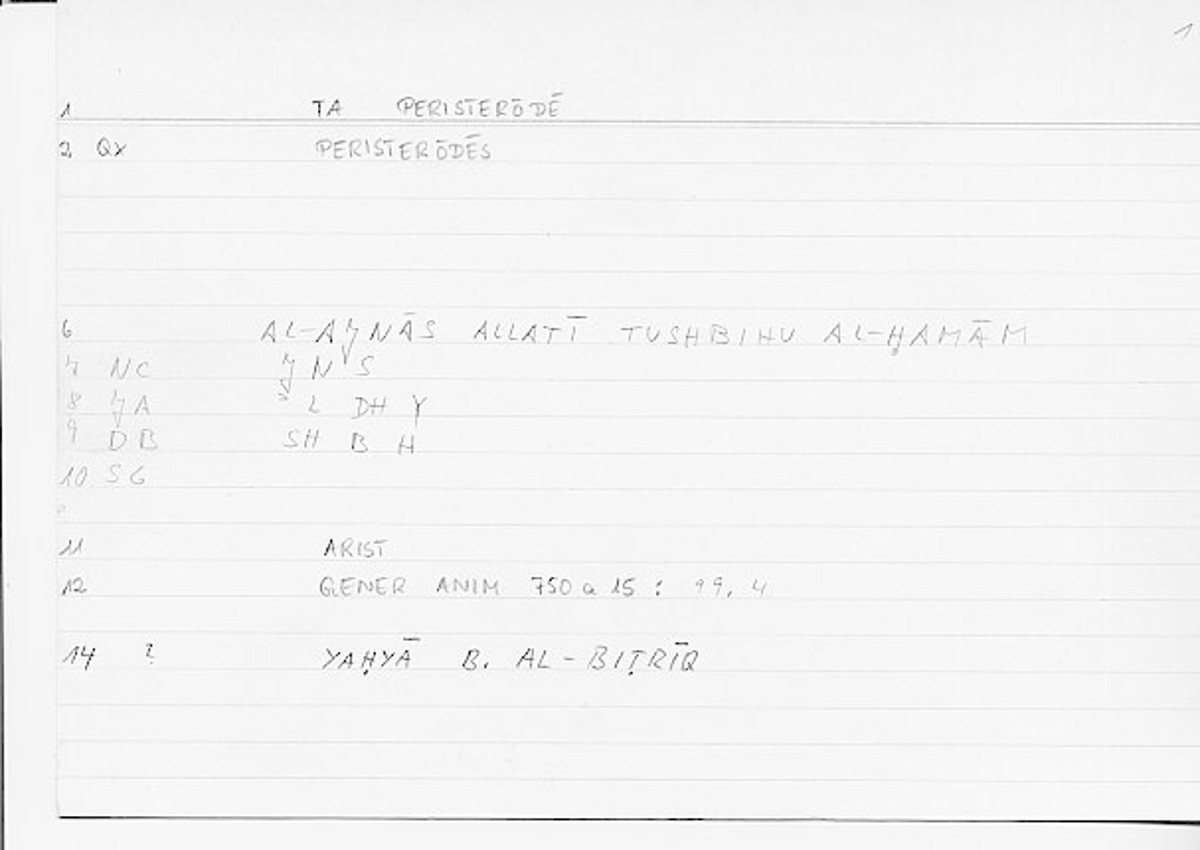 1
1 TA PERISTERŌDĒ
2 Qx PERISTERŌDĒS
6 AL-AǦNĀS ALLATĪ TUSHBIHU AL-ḤAMĀM
7 NC Ǧ N S
8 ǦA L DH Y
9 DB SH B H
10 SG
11 ARIST
12 GENER ANIM 750 a 15 : 99, 4
14 ? YAḤYĀ B. AL-BIṬRĪQ